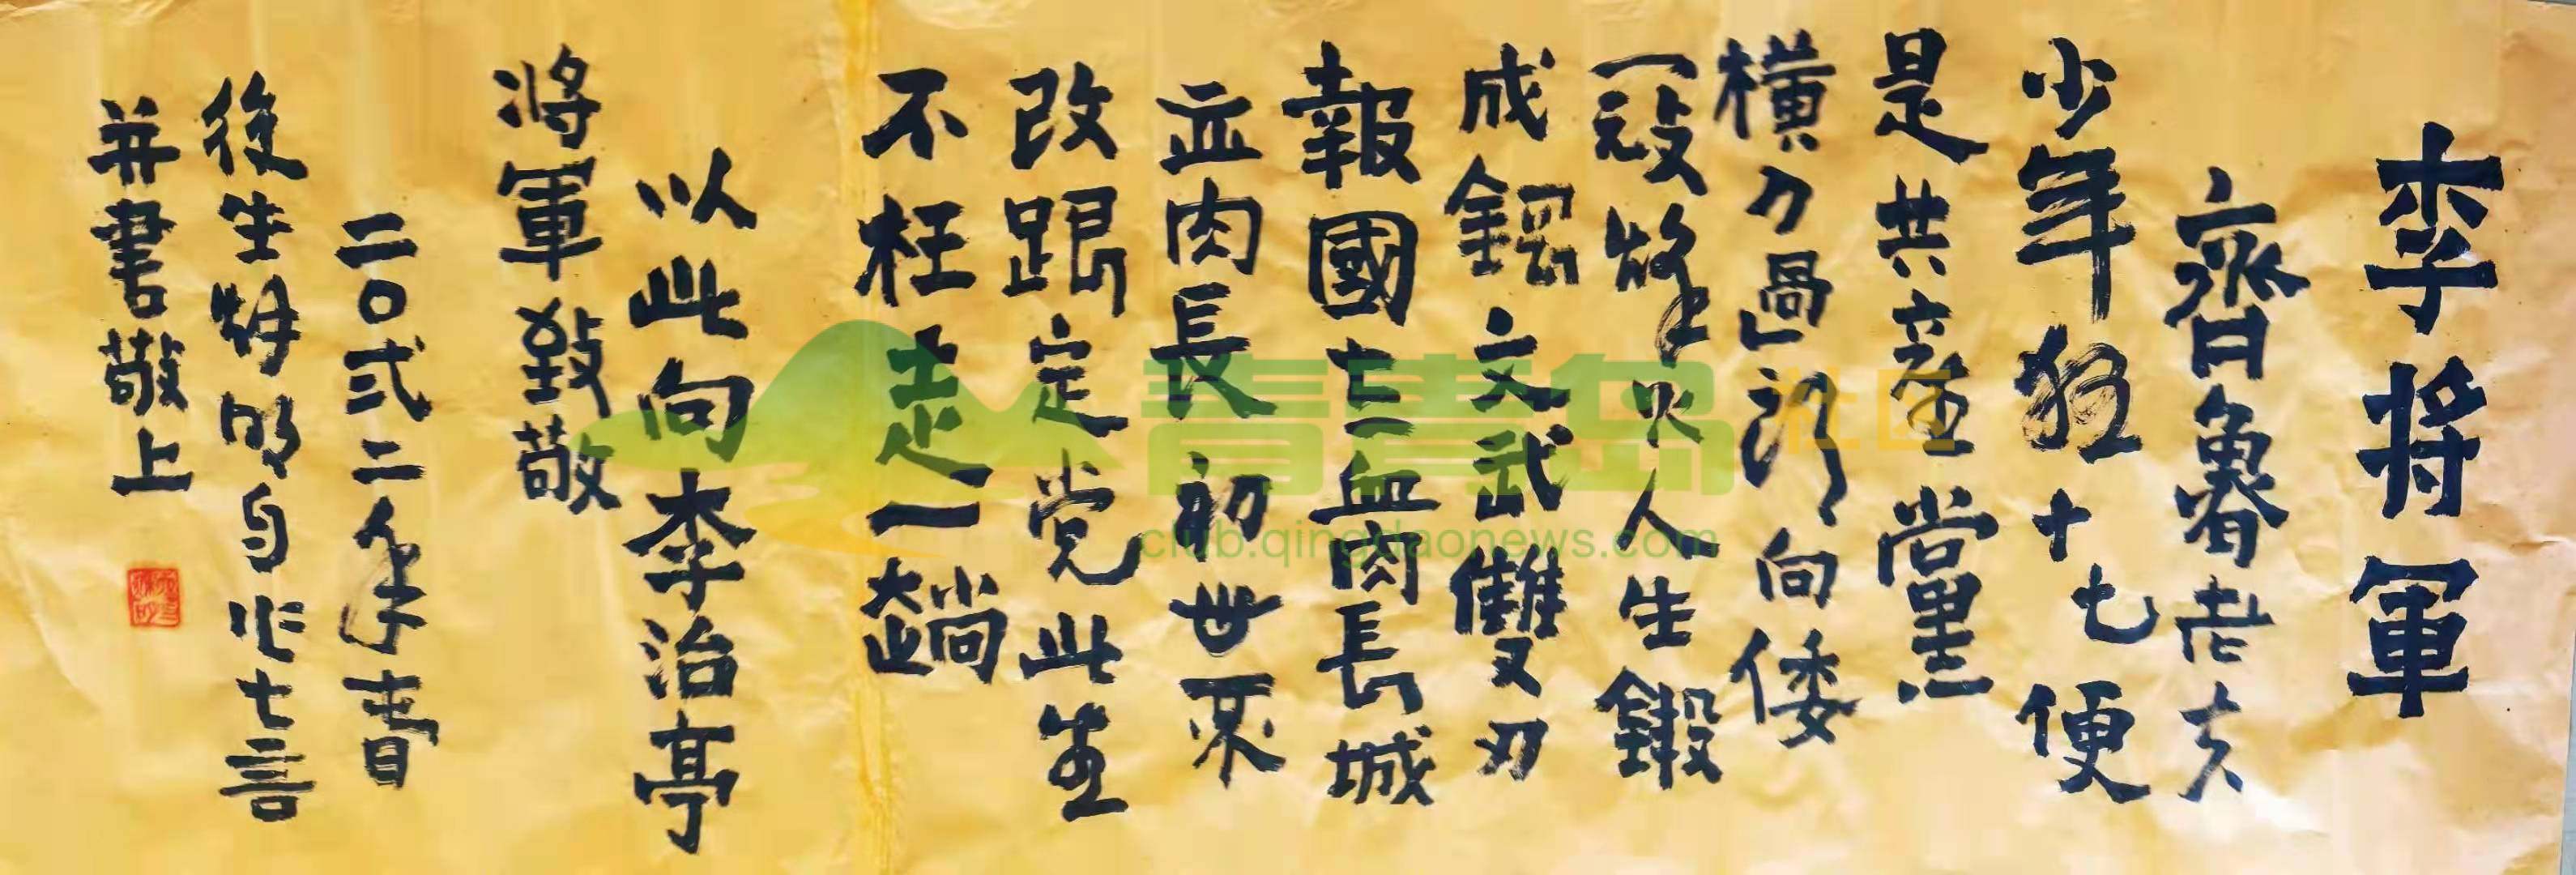 李将軍
齊魯老夫
少年狂十七便
是共産黨
横刀過頭向倭
冦烽火人生鍛
成鋼文武雙刃
報國血肉長城
肉長初世不
改跟定党此生
不枉走一趟
以此向李治亭
將軍致敬
二〇弍二年春
後生明自作七言
并書敬上
青青岛 社区
club.qingdaonews.com